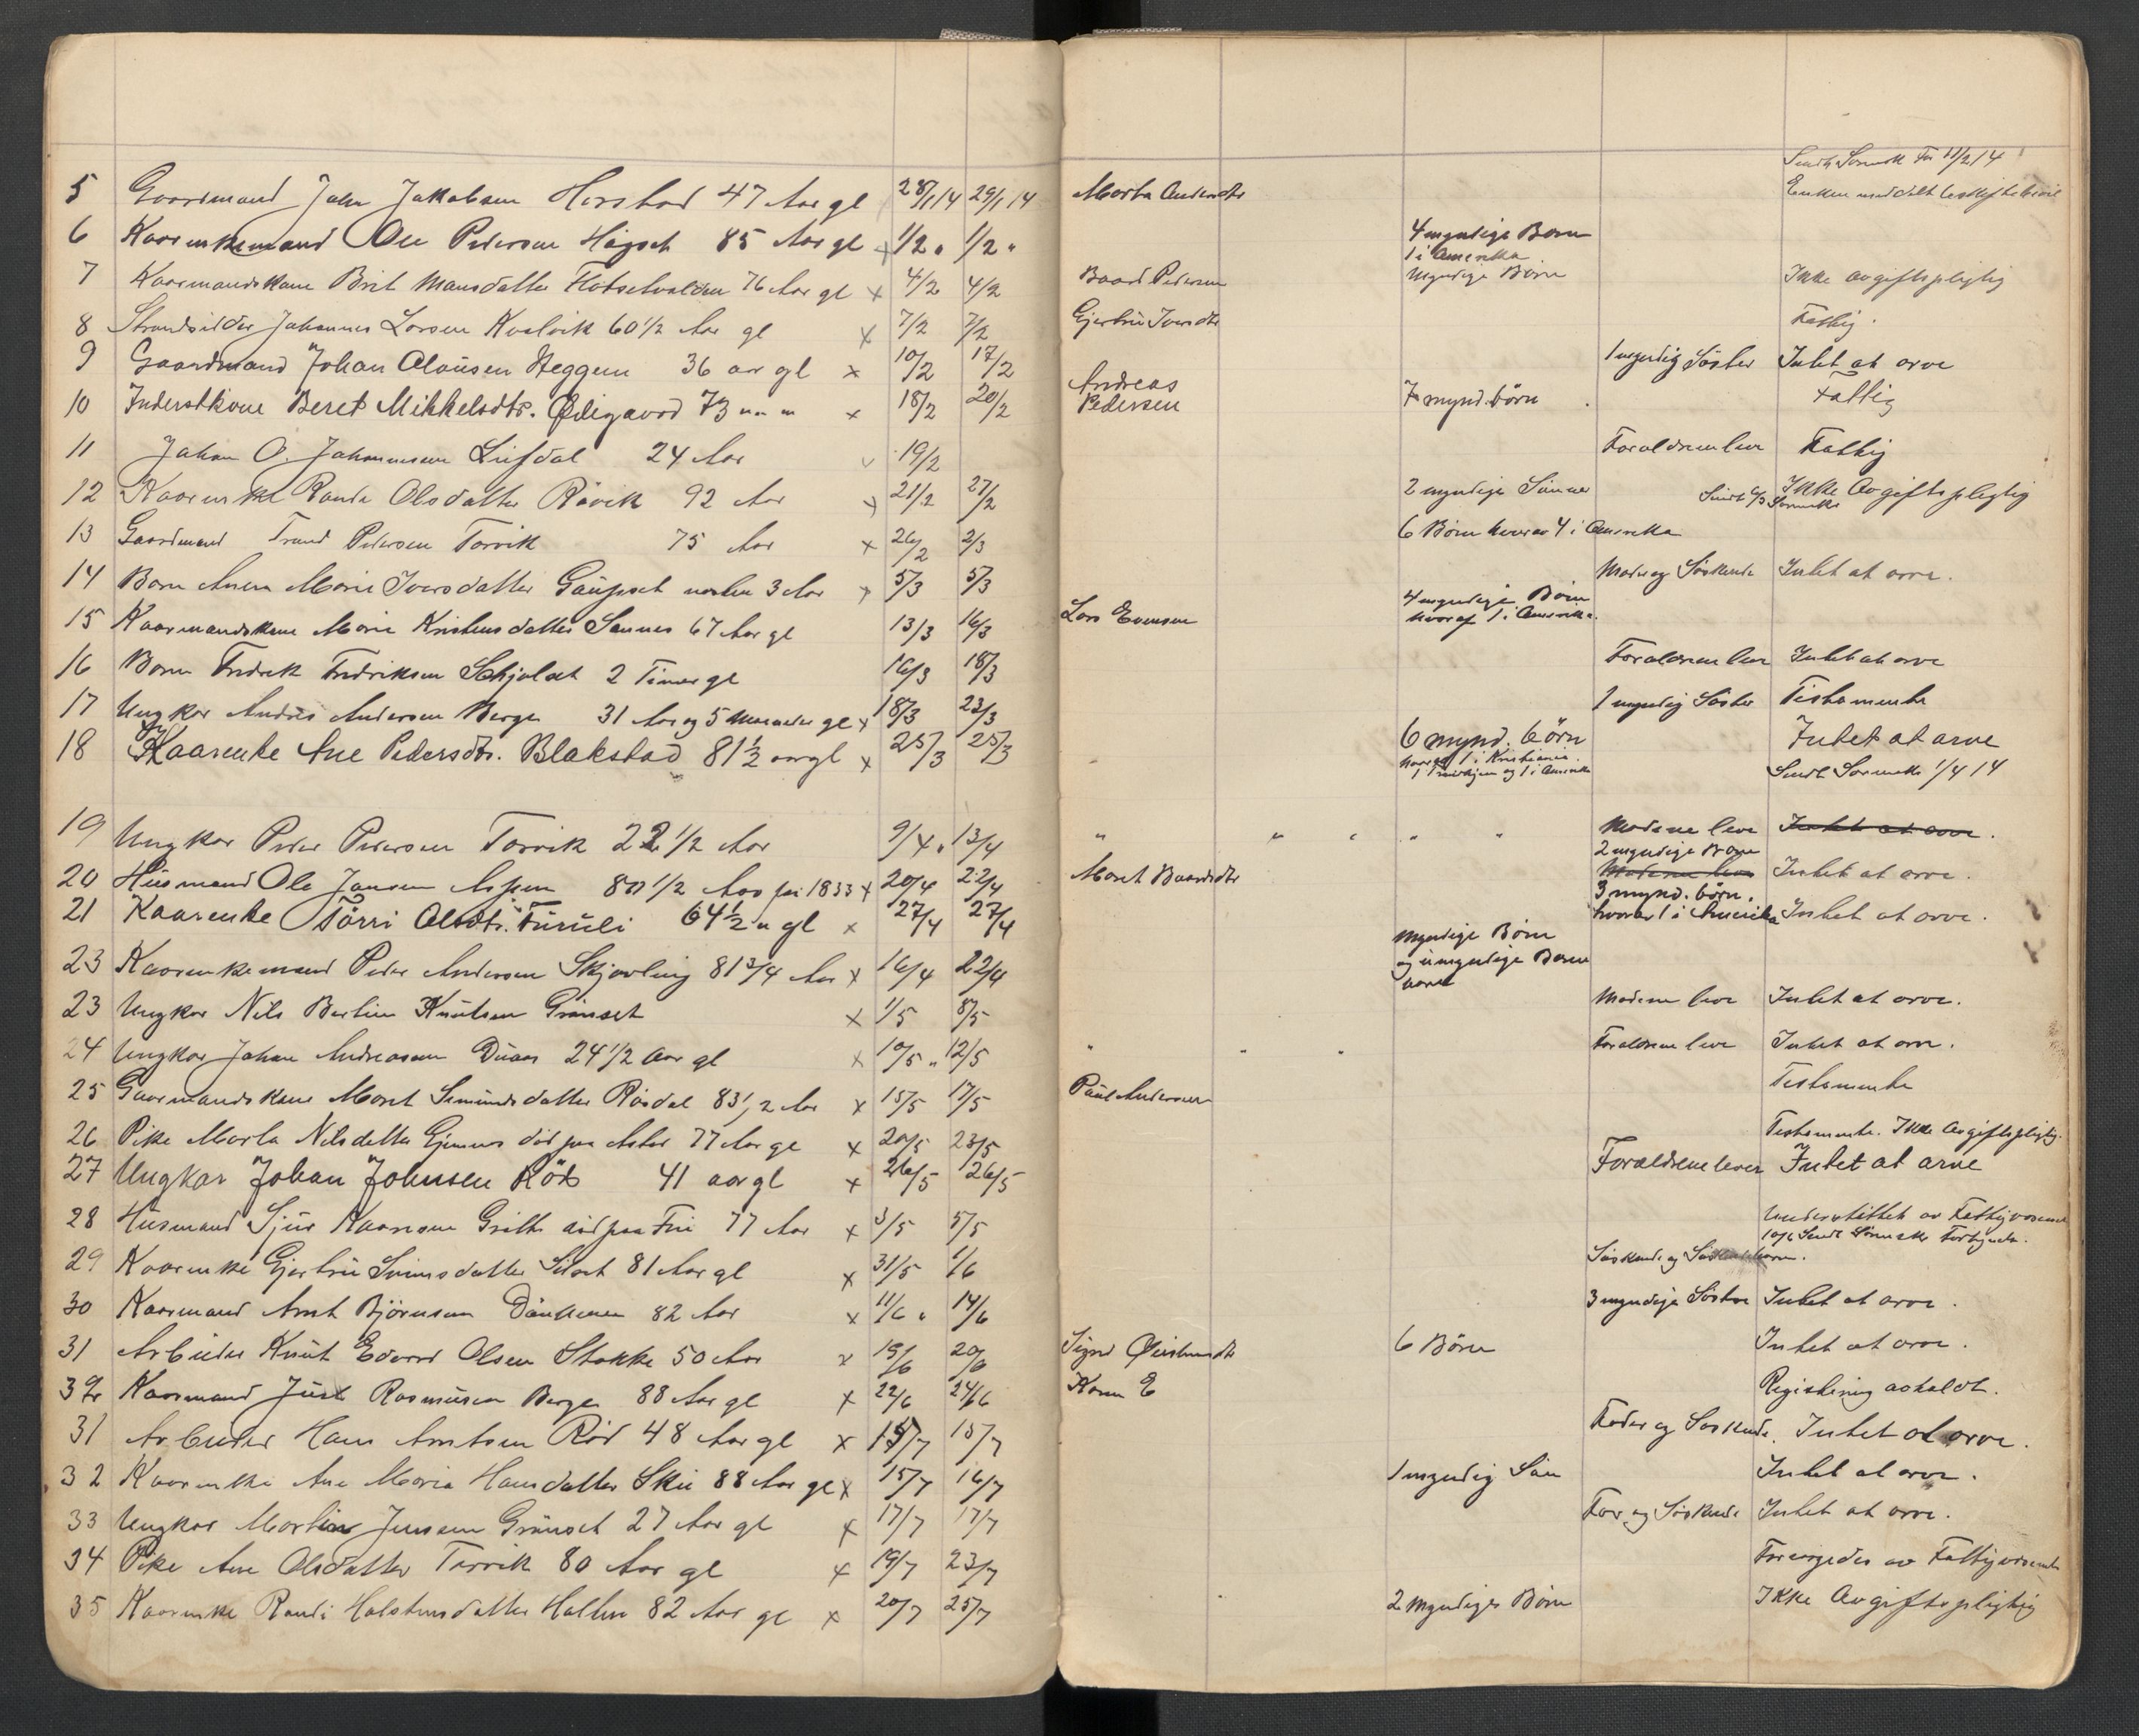 Sendt Sorensk For 11/2 14
5 Gaardmand John Jakobsen Horstad 47 Aar gl 28/1 14 29/1 14 Marta Andersdtr Enken meddelt
6 Kaarenkemand Ole Pedersen Högset 85 Aar gl 1/2 " 1/2 " 4 myndige Born
1 i Amerika
7 Kaarmandskone Brit Mansdatter 76 Aar gl x 4/2 4/2 Baard Pedersen Myndige Börn Ikke avgiftspligtig
8 Strandsidder Johannes Larsen Kvalvik 60 1/2 Aar gl x 7/2 7/2 Gjertru Iversdtr Fattig.
9 Gaardmand Johan Olausen Heggem 36 aar gl x 10/2 17/2 1 myndig Söster Intet at arve
10 Inderstkone Beret Mikkelsdtr. Ödegaard 73 " " " x 18/2 20/2 Andreas Pedersen 7 mynd. börn Fattig
11 Johan O. Johannesen Lüfdal 24 Aar 19/2 Foraldrene lever Fattig
12 Kaarenke Randi Olsdatter Rövik 92 Aar x 21/2 27/2 2 myndige Sönner Sendt 6/3 Sorensk Ikke Avgiftspligtig
13 Gaardmand Trond Pedersen Torvik 75 Aar x 26/2 2/3 6 Börn hvorav 4 i Amerika
14 Barn Anna Marie Iversdatter Gaupset neslen 3 Aar x 5/3 5/3 Moder og Söskende Intet at arve.
15 Kaarmandskone Marie Kristensdatter Sannes 67 Aar gl 13/3 16/3 Lars Evensen 4 myndige Börn
hvoraf 1 i Amerika.
16 Barn Fredrik Fredriksen Schjølset 2 Timer gl 16/3 18/3 Foraldrene lever Intet at arve
17 Ungkar Anders Andersen Berge 31 Aar og 5 Maaneder gl x 18/3 23/3 1 myndig Söster Testamente
18 Kaarenke Ane Pedersdtr. Blakstad 81 1/2 aar gl x 25/3 25/3 6 mynd. börn Intet at arve
hvoraf 1 i Kristiania
og 1 i Amerika Sendt Sorensk 1/4 14
19 Ungkar Peder Pedersen Torvik 22 1/2 Aar 9/4 " 13/4 " " " " " Moderen lever Intet at arve.
2 myndige Born
20 Husmand Ole Jansen Aspen 80 1/2 Aar före 1833 x 20/4 22/4 Maret Baardsdtr Moderen lever Intet at arve.
3 mynd. börn,
21 Kaarenke Törri Olsdtr. Furuli 64 1/2 " gl x 27/4 27/4 hvorav 1 i Amerika Intet at arve.
23 Kaarenkemand Peder Andersen Skjövling 81 3/4 Aar x 16/4 22/4 Myndige Börn
og umyndige Borne
barn
23 Ungkar Nils Bertin Knutsen Grönset x 1/5 8/5 Moderen lever Intet at arve.
24 Ungkar Johan Andreasen Duaas 24 1/2 Aar gl x 10/5 " 12/5 " " " Foraldrene lever Intet at arve.
25 Gaarmandskone Maret Simundsdatter Rösdal 83 1/2 Aar x 15/5 17/5 Paul Andersen Testamente
26 Pike Marta Nilsdatter Gjemnes död paa Aster 77 Aar gl x 20/5 23/5 Testamente. Ikke Avgiftspligtig.
27 Ungkar Johan Johnsen Röd 41 aar gl x 26/5 26/5 Foraldrene lever Intet at arve
28 Husmand Sjur Kaaresen død paa Fri 77 Aar x 3/5 5/5 Understöttet av Fattigvæsenet
10/6 Sendt Sorensk
29 Kaarenke Gjertru Sivensdatter Silset 81 Aar gl x 31/5 1/6 Söskende og Söskendebarn.
30 Kaarmand Arnt Björnsen 82 Aar x 11/6 " 14/6 3 myndige Söstre Intet at arve.
31 Arbeider Knut Edvard Olsen Stokke 50 Aar x 19/6 20/6 Signe Øistensdtr 6 Börn Intet at arve.
32 Kaarmand Just Rasmusen Berge 88 Aar gl x 22/6 24/6 Karen E Registering avholdt.
31 Arbeider Hans Arntsen Röd 48 Aar gl x 15/7 15/7 Fader og Söskende. Intet at arve.
32 Kaarenke Ane Maria Hansdatter Skei 88 Aar gl x 15/7 16/7 1 myndig Sön Intet at arve.
33 Ungkar Martin Jensen Grönset 27 Aar gl x 17/7 17/7 Far og Söskende Intet at arve.
34 Pike Ane Olsdatter Torvik 80 Aar gl x 19/7 23/7 Forsorgedes av Fattigvæsenet
35 Kaarenke Randi Halstensdatter Hallen 82 Aar gl x 20/7 25/7 2 myndiger Börn Ikke Avgiftspligtig